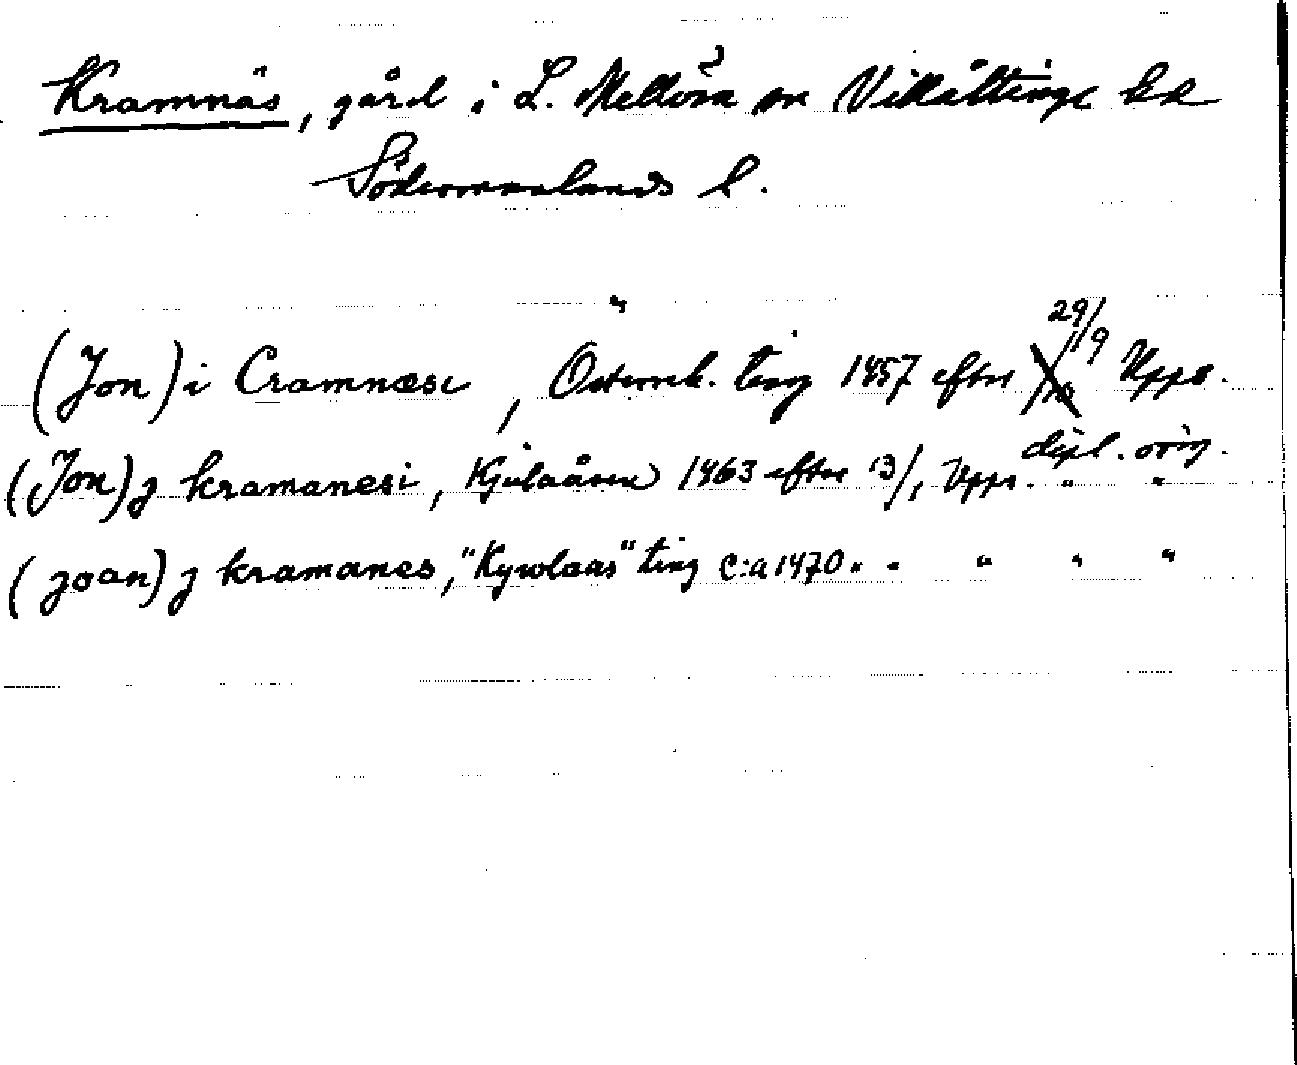 Kramnäs, gård i L. Mellösa sn Villåttinge hd
Södermanlands l.
(Jon) i Cramnæse, Österrek. ting 1457 efter 29/9 Upps. dipl. orig.
(Jon) j kramanesi, Kjulaåsen 1463 efter 13/1 Upps. " "
(joan) j kramanes, "Kywlaas" ting c:a 1470 " " " " "